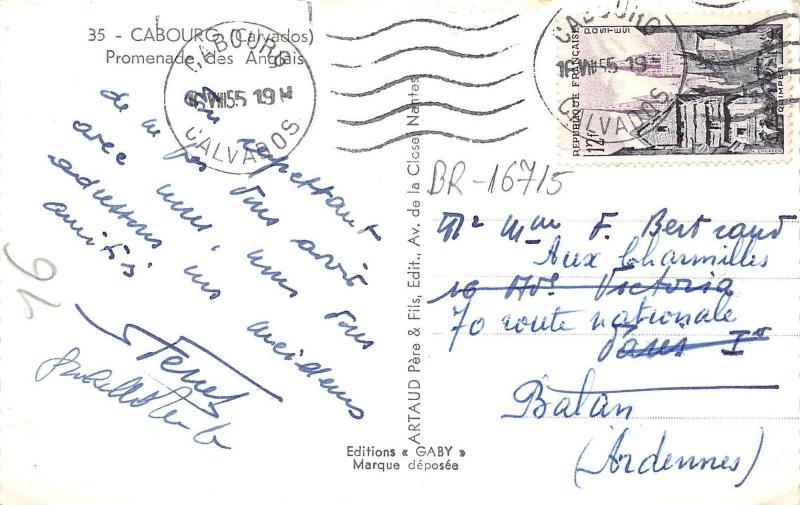 35 - CABOURG (Calvados)
Promenade des Anglais
CABOURG
16 VIII 55 19 H
CALVADOS
En regrettant
de ne pas vous avoir
avec nous, nous vous
adressons nos meilleures
amitiés
92
ARTAUD Père & Fils, Edit., Av. de la Close, Nantes
Editions « GABY »
Marque déposée
CABOURG
16 VIII 55 19 H
CALVADOS
REPUBLIQUE FRANÇAISE
POSTES
QUIMPER
12f
BR-16715
Mr Mme F. Bertrand
Aux Charmilles
16 Ave Victoria
70 route nationale
Paris Ier
Balan
(Ardennes)